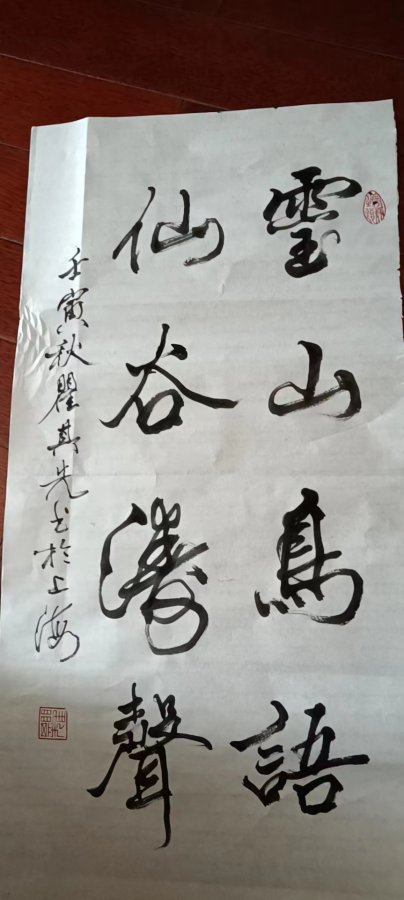 靈山鳥語
仙谷濤聲
壬寅秋瞿其先書於上海